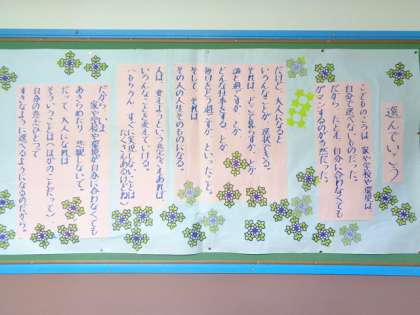 選んでいこう
こどものころは 家や学校や環境は
自分で選べないものだった。
だから たとえ自分に合わなくても
ガマンするのがあたり前だった。
だけど、大人になると
いろんなことが選択できる。
それは、どこに住むか、とか
誰と過ごすか、とか
どんな仕事をするか、とか
毎日をどう過ごすか といったこと。
そして、それは
その人の人生そのものになる。
人は、変えようという意志さえあれば、
いろんなことを変えていける。
(もちろん、すぐに実現しないことは
たくさんあるけどね)
だから、いま
家や学校や環境が自分に合わなくても
あきらめたり 悲観しないで。
だって、大人になれば
そういうことは(ほかのことだって)
自分の意志ひとつで
すきなように選べるようになるのだから。